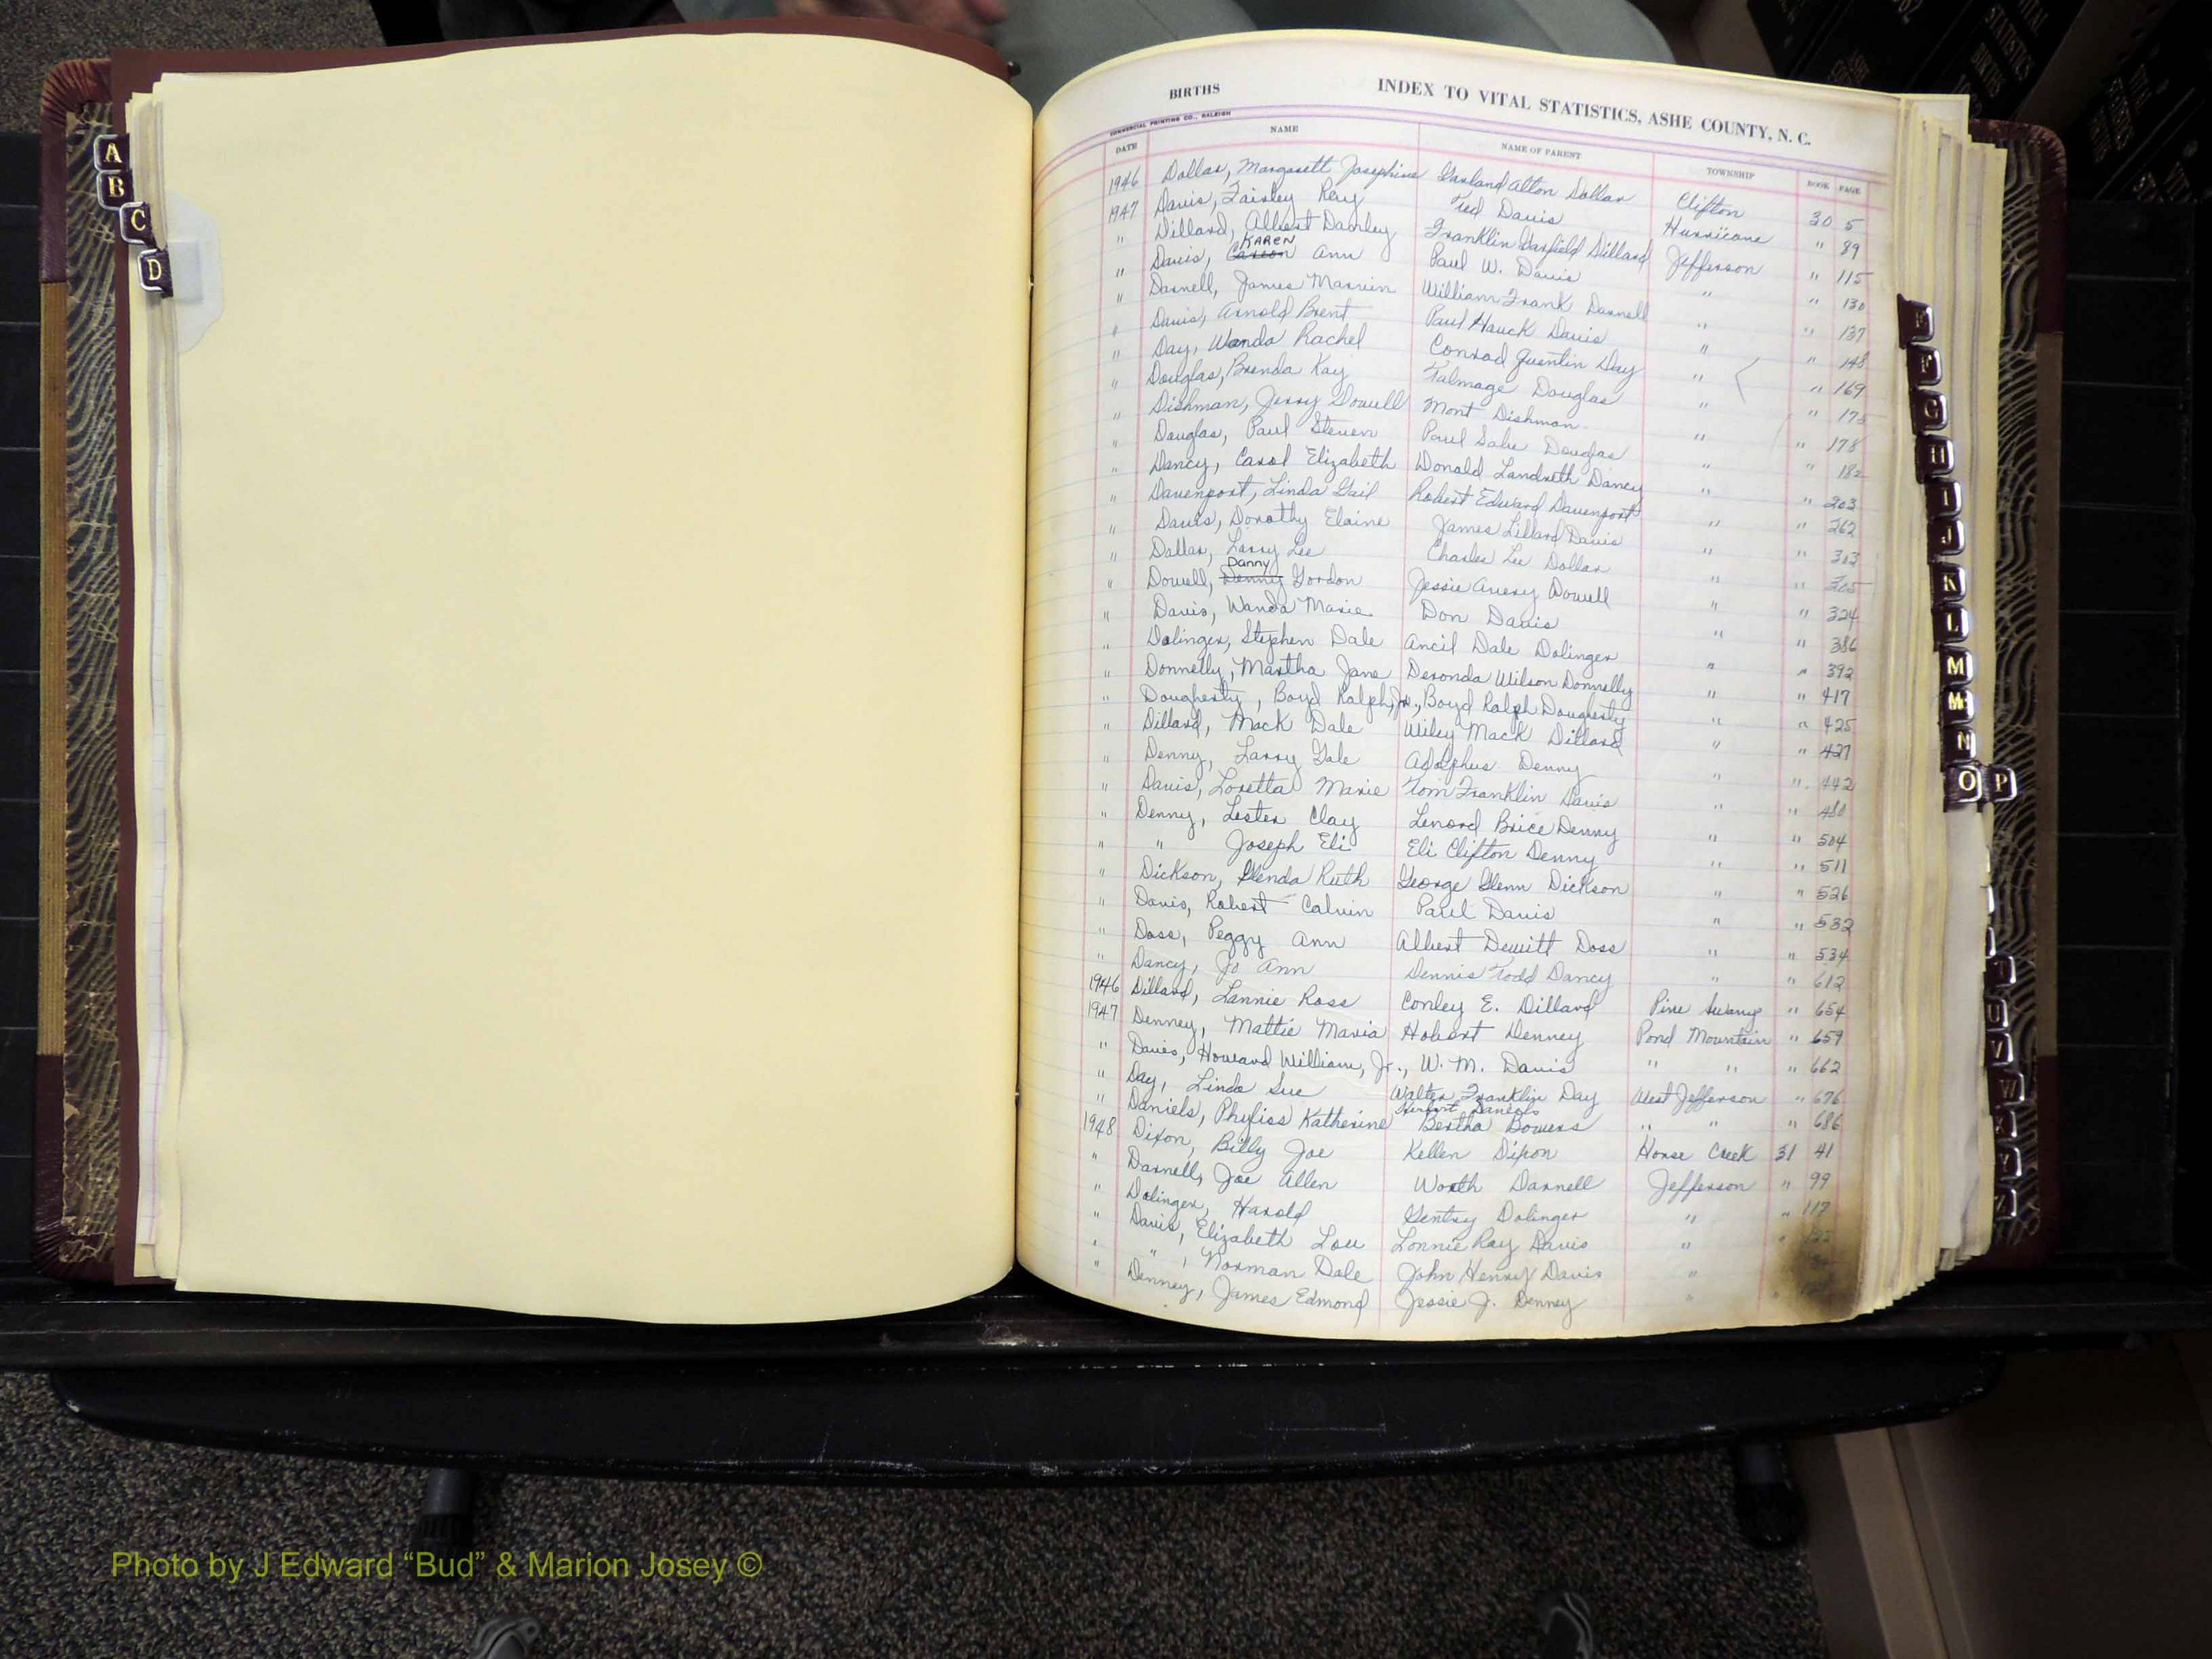 A
B
C
D
BIRTHS INDEX TO VITAL STATISTICS, ASHE COUNTY, N. C.
COMMERCIAL PRINTING CO., RALEIGH
DATE NAME NAME OF PARENT TOWNSHIP BOOK PAGE
1946 Dollar, Margarett Josephine Garland Alton Dollar Clifton 30 5
1947 Davis, Fairley Reny Ted Davis Hurricane " 89
" Dillard, Albert Dachley Franklin Garfield Dillard Jefferson " 115
KAREN
" Davis, Ann Paul W. Davis " " 130
" Darnell, James Marvin William Frank Darnell " " 137
" Davis, Arnold Brent Paul Hauck Davis " " 148
" Day, Wanda Rachel Conrad Quentin Day " " 169
" Douglas, Brenda Kay Talmage Douglas " " 175
" Dishman, Jerry Dowell Mont Dishman " " 178
" Douglas, Paul Steven Paul Douglas " " 182
" Dancy, Carol Elizabeth Donald Landreth Dancy " " 203
" Davenport, Linda Gail Robert Edward Davenport " " 262
" Davis, Dorothy Elaine James Lillard Davis " " 303
" Dollar, Larry Lee Charles Lee Dollar " " 305
Danny
" Dowell, Denny Gordon Jessie Avery Dowell " " 324
" Davis, Wanda Marie Don Davis " " 386
" Dolinger, Stephen Dale Ancil Dale Dolinger " " 392
" Donnelly, Martha Jane Deronda Wilson Donnelly " " 417
" Dougherty, Boyd Ralph, Jr., Boyd Ralph Dougherty " " 425
" Dillard, Mack Dale Wiley Mack Dillard " " 427
" Denny, Larry Gale Adolphus Denny " " 442
" Davis, Loretta Marie Tom Franklin Davis " " 480
" Denny, Lester Clay Lenord Brice Denny " " 504
" " Joseph Eli Eli Clifton Denny " " 511
" Dickson, Glenda Ruth George Glenn Dickson " " 526
" Davis, Robert Calvin Paul Davis " " 532
" Doss, Peggy Ann Albert Dewitt Doss " " 534
" Dancy, Jo Ann Dennis Todd Dancy " " 612
1946 Dillard, Lannie Ross Conley E. Dillard Pine Swamp " 654
1947 Denney, Mattie Maria Hobert Denney Pond Mountain " 659
" Davis, Howard William, Jr., W. M. Davis " " " 662
" Day, Linda Sue Walter Franklin Day West Jefferson " 676
Herbert Daniels
" Daniels, Phyliss Katherine Bertha Bowers " " " 686
1948 Dixon, Billy Joe Kellen Dixon Horse Creek 31 41
" Darnell, Joe Allen Worth Darnell Jefferson " 99
" Dolinger, Harold Gentry Dolinger " " 117
" Davis, Elizabeth Lou Lonnie Ray Davis " "
" " , Norman Dale John Henry Davis "
" Denney, James Edmond Jessie J. Denney " "
E
F
G
H
I
J
K
L
M
Mc
N
O P
T
U
V
W
X
Y
Z
VITAL STATISTICS BIRTHS
Photo by J Edward “Bud” & Marion Josey ©